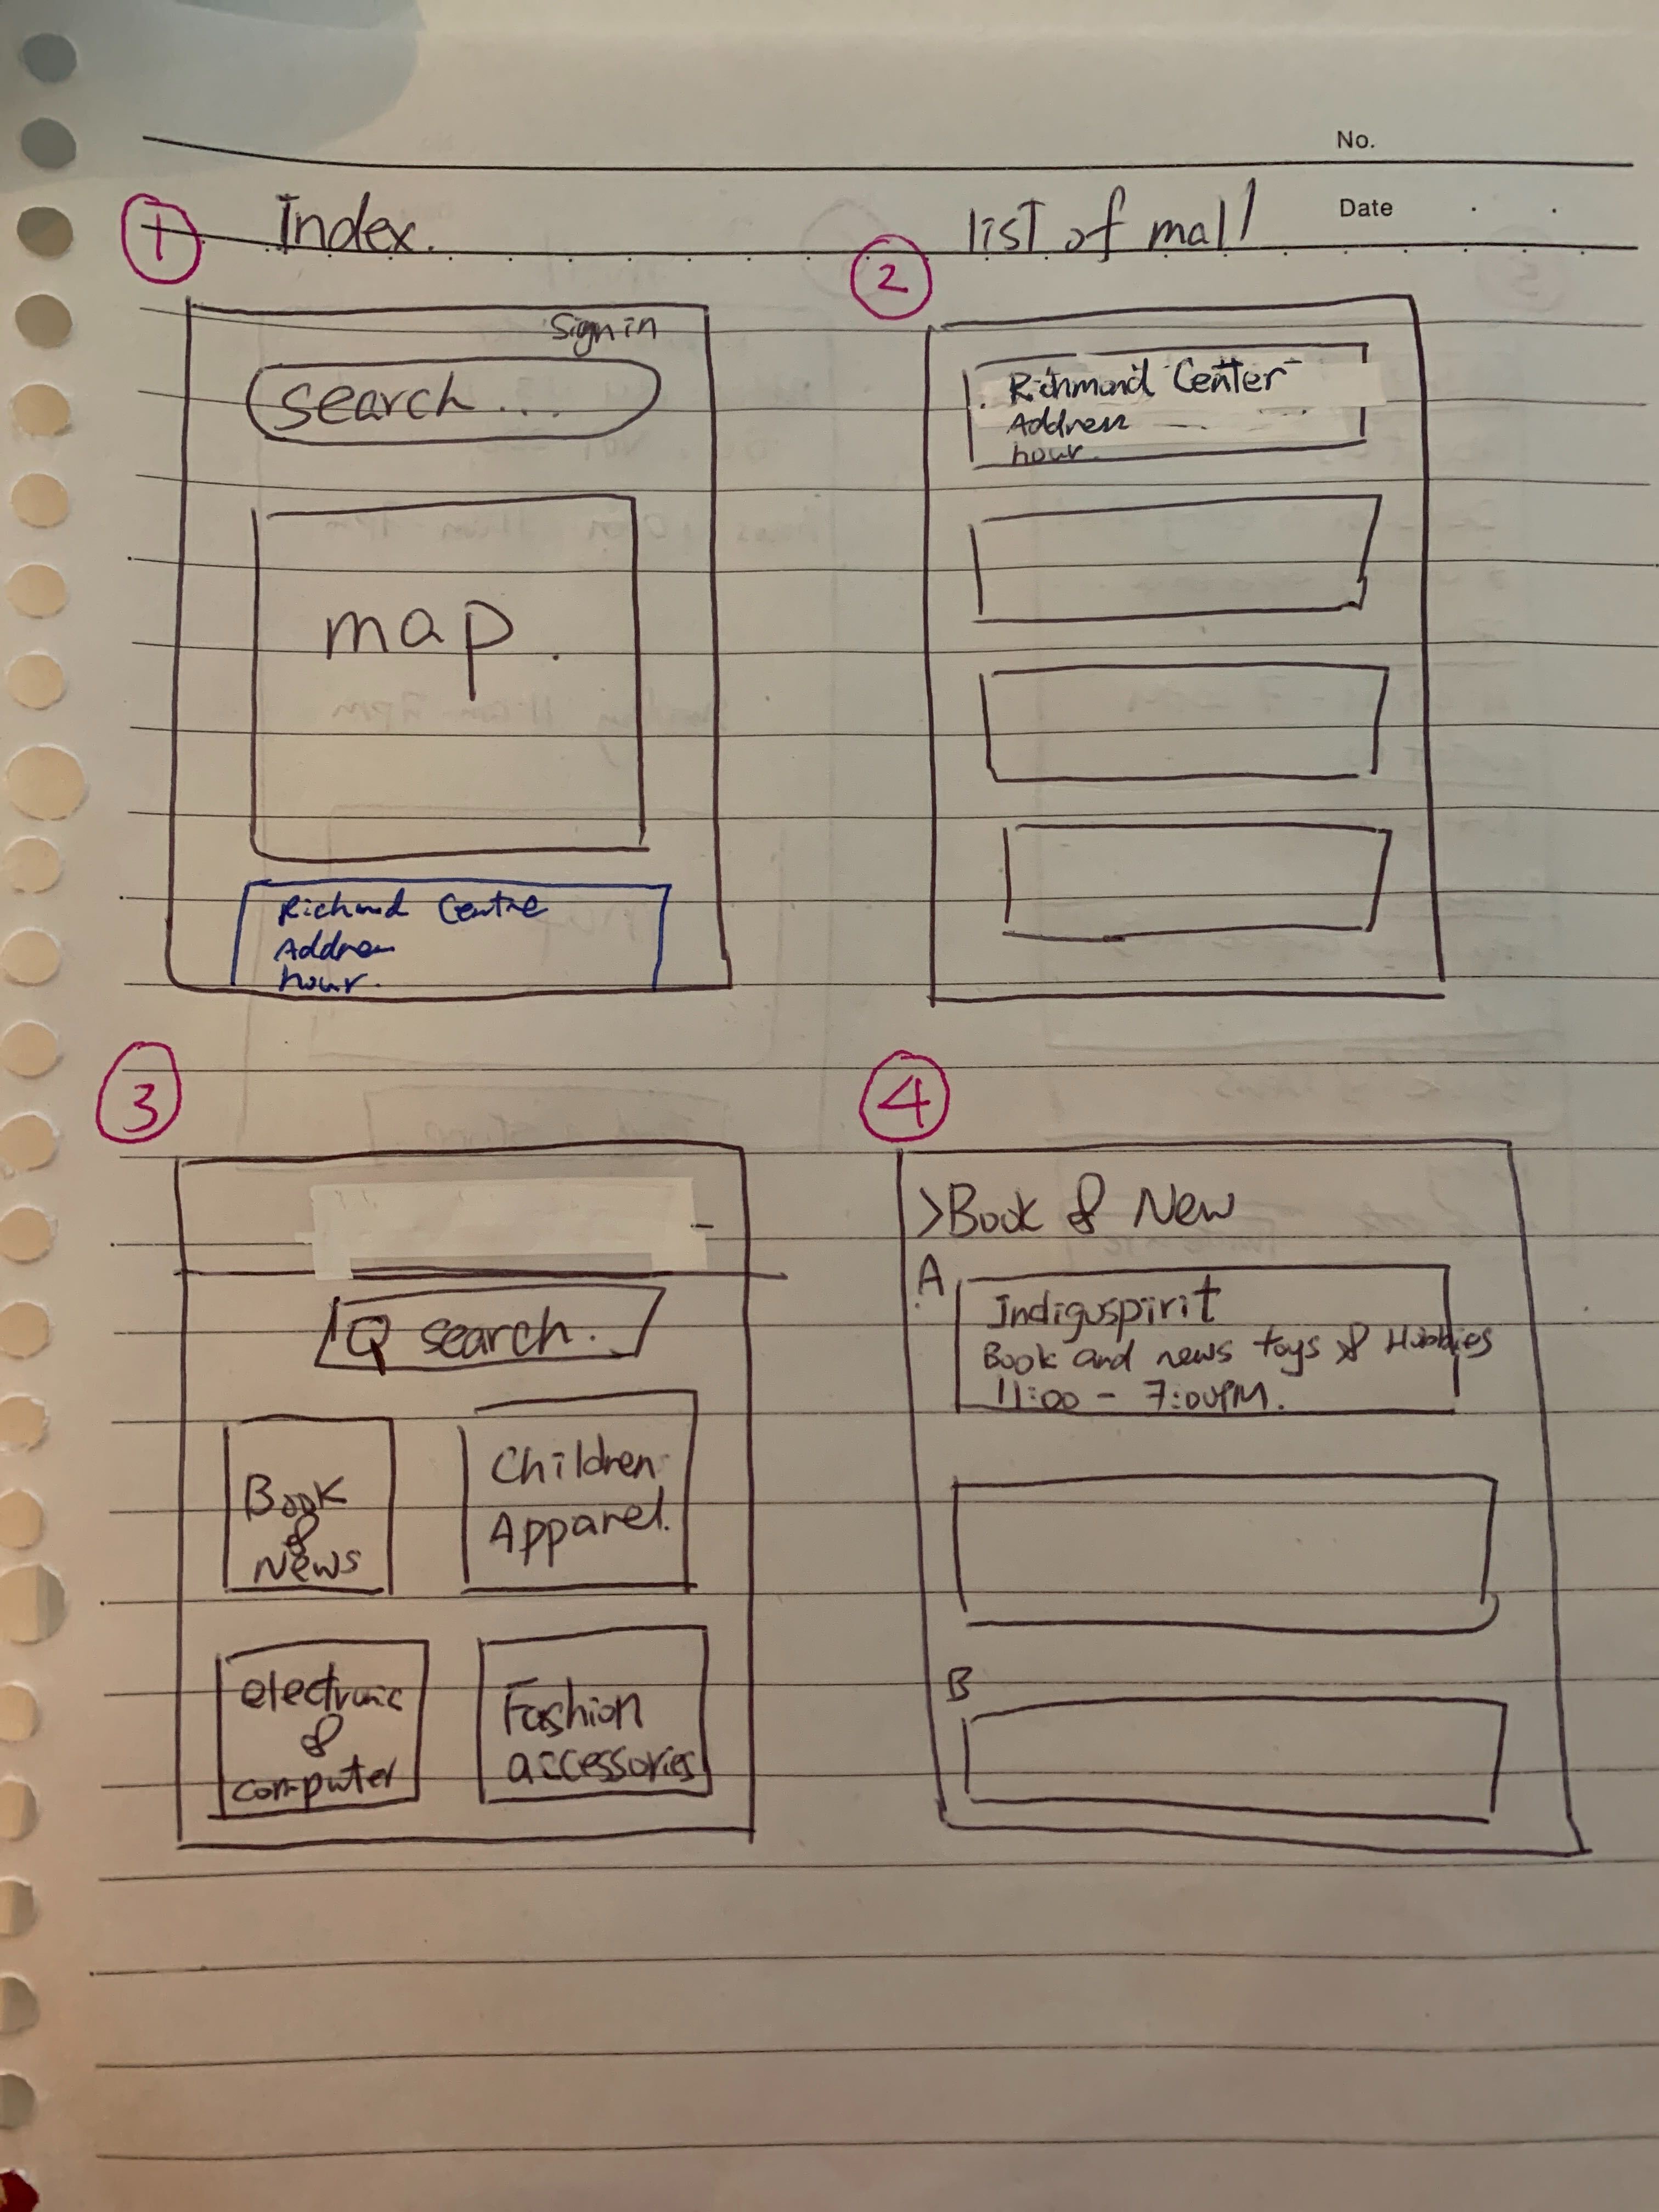 No.
Date
1 Index.
2 list of mall
Sign in
search...
map.
Richmd Centre
Address
hour.
Richmond Center
Address
hour.
3
Q search.
Book
&
News
Children
Apparel.
electronic
&
computer
Fashion
accessories
4
>Book & New
A
Indiguspirit
Book and news toys & Hobbies
11:00 - 7:00PM.
B